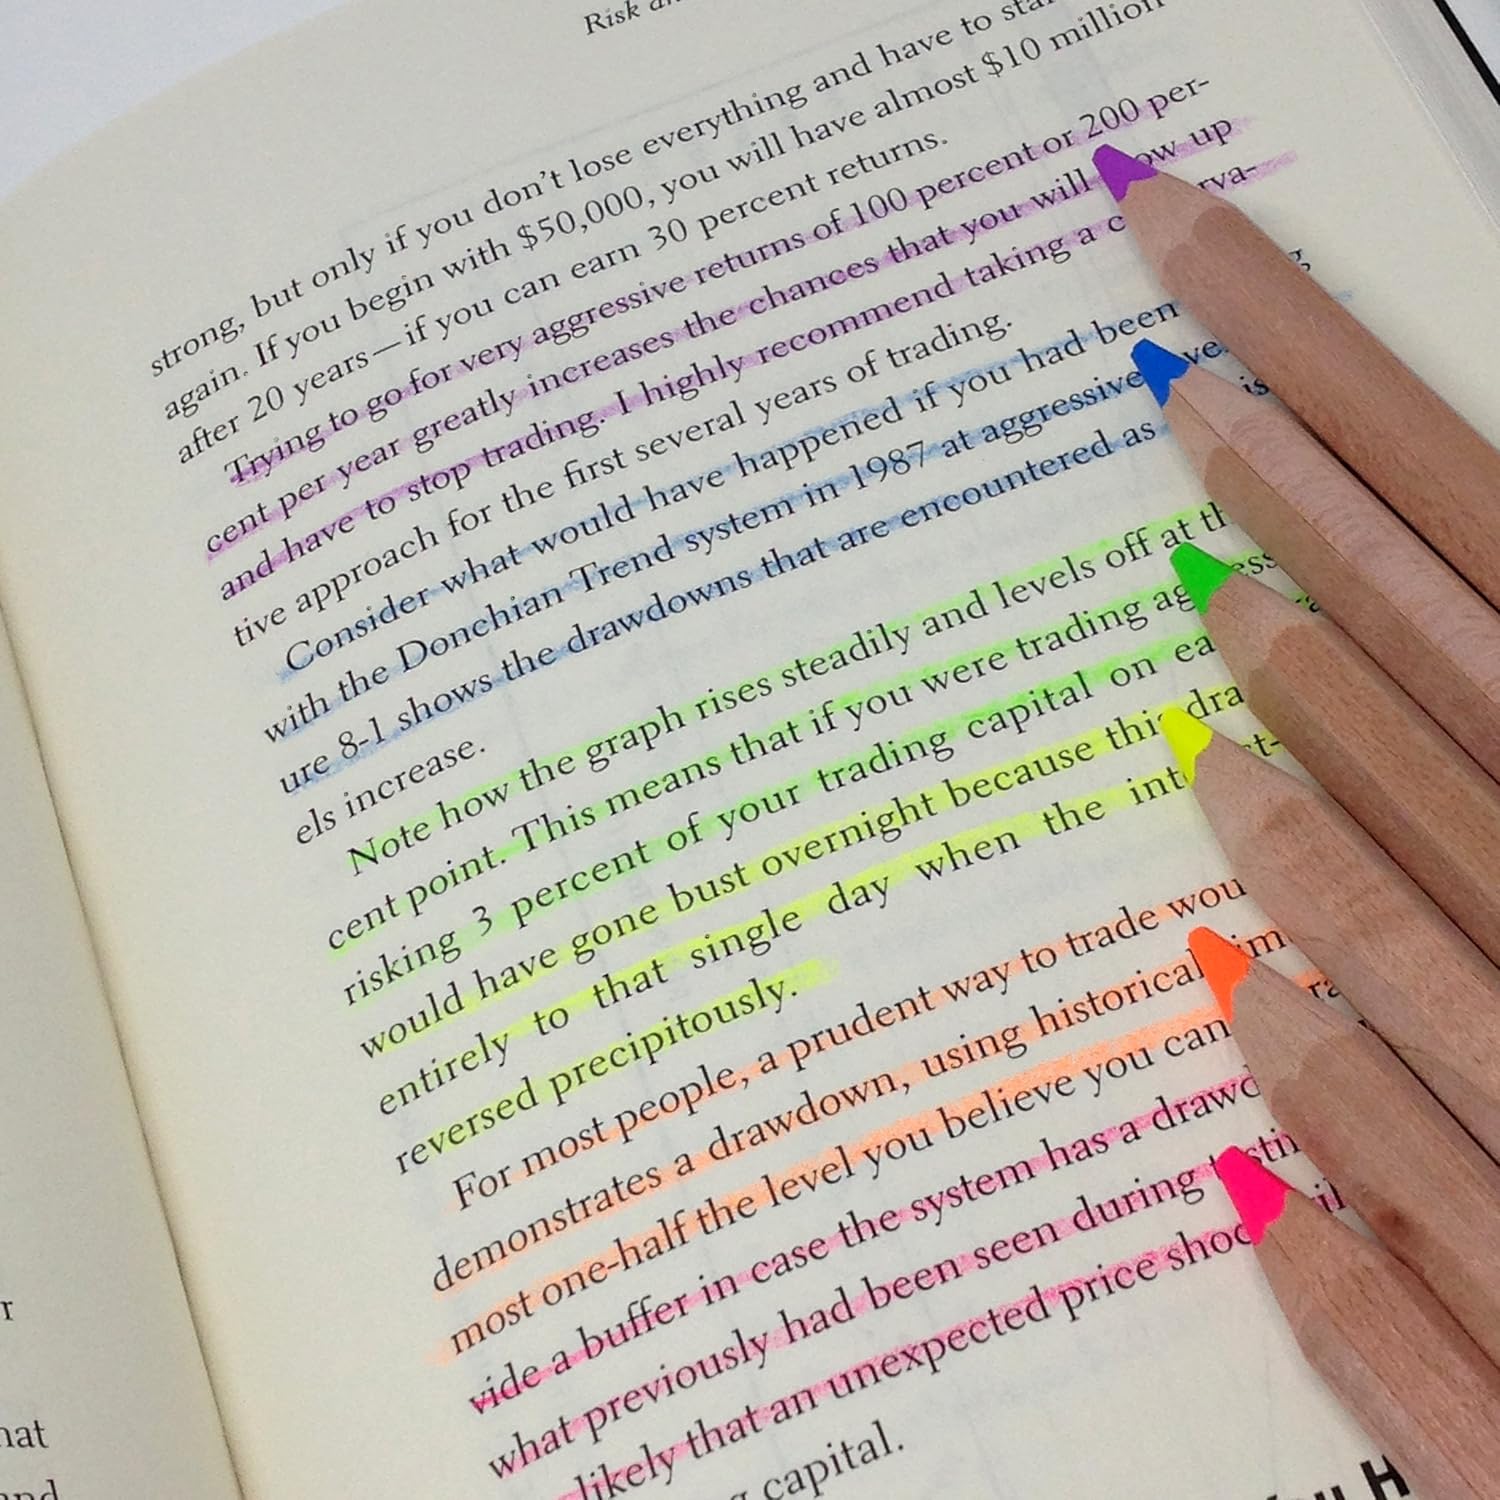 Risk
strong, but only if you don't lose everything and have to
again. If you begin with $50,000, you will have almost $10 million
after 20 years—if you can earn 30 percent returns.
Trying to go for very aggressive returns of 100 percent or 200 per-
cent per year greatly increases the chances that you will up
and have to stop trading. I highly recommend taking a
tive approach for the first several years of trading.
Consider what would have happened if you had been
with the Donchian Trend system in 1987 at aggressive
ure 8-1 shows the drawdowns that are encountered as
els increase.
Note how the graph rises steadily and levels off at
cent point. This means that if you were trading
risking 3 percent of your trading capital on
would have gone bust overnight because this
entirely to that single day when the
reversed precipitously.
For most people, a prudent way to trade
demonstrates a drawdown, using historical
most one-half the level you believe you can
vide a buffer in case the system has a
what previously had been seen during
likely that an unexpected price
capital.